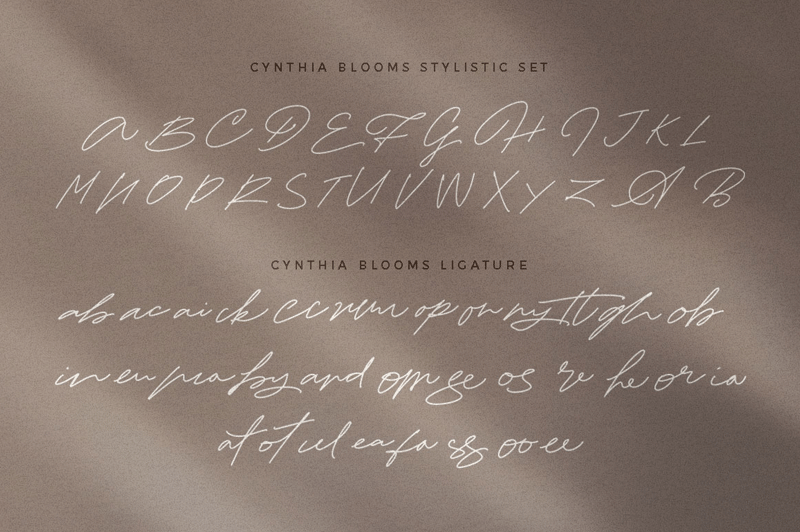 CYNTHIA BLOOMS STYLISTIC SET
A B C D E F G H I J K L
M N O P R S T U V W X Y Z A B
CYNTHIA BLOOMS LIGATURE
ab ac ai ck cc rr um op on ny tt gh ob
in en pua by and opm ge os re he or ia
at ot ul ea fa ss oo ee